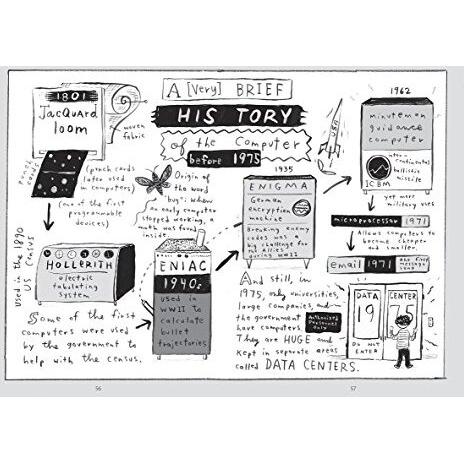 A [Very] BRIEF
HISTORY
of the Computer
before 1975
1801
JACQUARD
loom
woven
fabric
punch
cards
(punch cards
later used
in computers)
(one of the first
programmable
devices)
used in the 1890
US census
HOLLERITH
electric
tabulating
system
Some of the first
computers were used
by the government to
help with the census.
Origin of
the word
"bug": when
an early computer
stopped working, a
moth was found
inside.
ENIAC
1940s
used in
WWII to
calculate
bullet
trajectories
1935
ENIGMA
German
encryption
machine
Breaking enemy
codes was a
big challenge for
the Allies
during WWII
1962
minuteman
guidance
computer
inter-
continental
ballistic
missile
ICBM
yet more
military uses
microprocessor 1971
Allows computers to
become cheaper
and smaller.
email 1971
And still, in
1975, only universities,
large companies and
the government
have computers.
They are HUGE and
kept in separate areas
called DATA CENTERS.
Authorized
Personnel
Only
DATA CENTER
19 75
DO NOT
ENTER
56
57